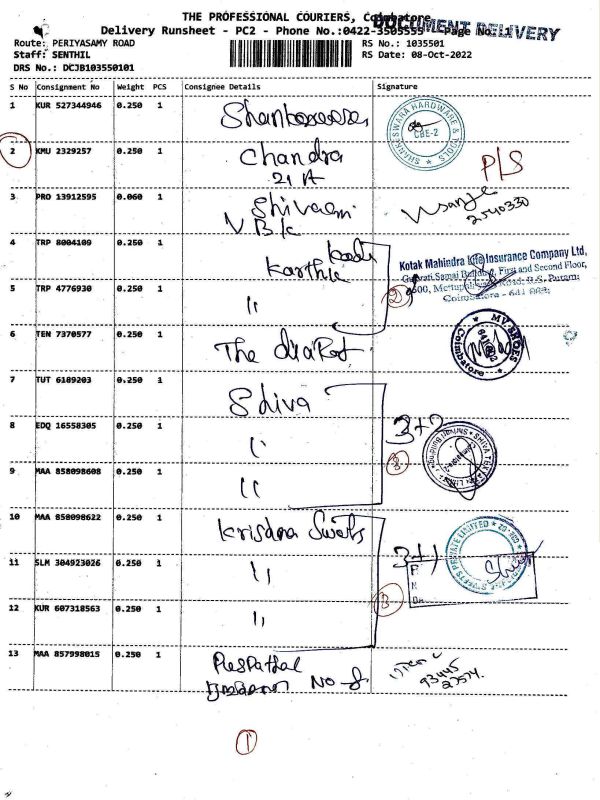 THE PROFESSIONAL COURIERS, Coimbatore
Delivery Runsheet - PC2 - Phone No.:0422-3505555 Page No. 1
DOCUMENT DELIVERY
Route: PERIYASAMY ROAD
Staff: SENTHIL
DRS No.: DCJB103550101
RS No.: 1035501
RS Date: 08-Oct-2022
S No Consignment No Weight PCS Consignee Details Signature
1 KUR 527344946 0.250 1
SHANKESWARA HARDWARE & TOOLS
CBE-2
2 KMU 2329257 0.250 1 Chandra
21 A
P/S
3 PRO 13912595 0.060 1 Shivaani
V B K
2540330
4 TRP 8004109 0.250 1 Karthik
Kotak Mahindra Life Insurance Company Ltd,
Gujarati Samaj Building, First and Second Floor,
5 TRP 4776930 0.250 1 "
2
6 TEN 7370577 0.250 1 The
MV SHOES
Coimbatore
7 TUT 6189203 0.250 1 Shiva
8 EDQ 16558305 0.250 1 "
3+2
3
9 MAA 858098608 0.250 1 "
10 MAA 858098622 0.250 1 Krishna Sweets
11 SLM 304923026 0.250 1 "
3+1
12 KUR 607318563 0.250 1 "
3
13 MAA 857998015 0.250 1
No
93445
27574
1